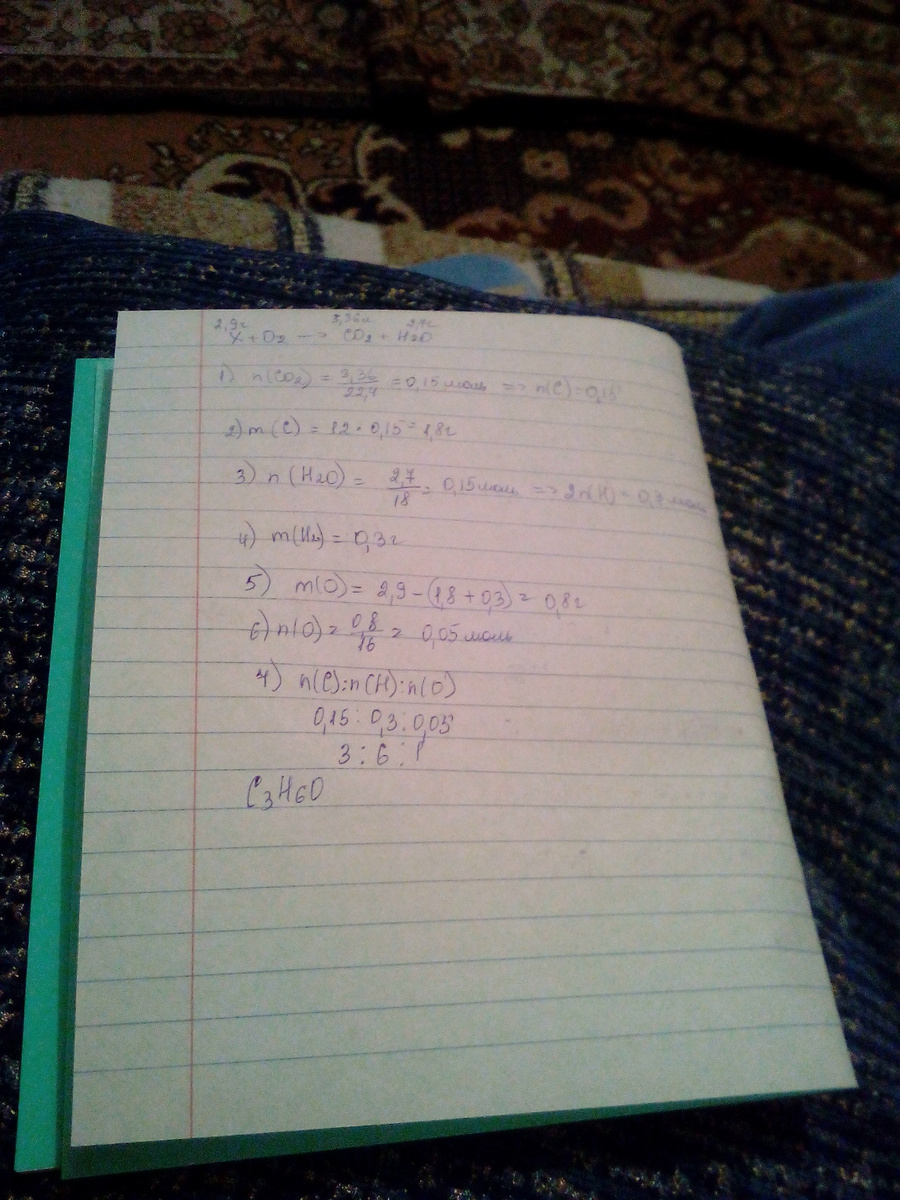 2,9г 3,36л 2,7г
X + O2 → CO2 + H2O
1) n(CO2) = 3,36/22,4 = 0,15 моль => n(C) = 0,15
2) m(C) = 12 · 0,15 = 1,8г
3) n(H2O) = 2,7/18 = 0,15 моль => 2n(H) = 0,3 моль
4) m(H2) = 0,3г
5) m(O) = 2,9 - (1,8 + 0,3) = 0,8г
6) n(O) = 0,8/16 = 0,05 моль
7) n(C):n(H):n(O)
0,15 : 0,3 : 0,05
3 : 6 : 1
C3H6O